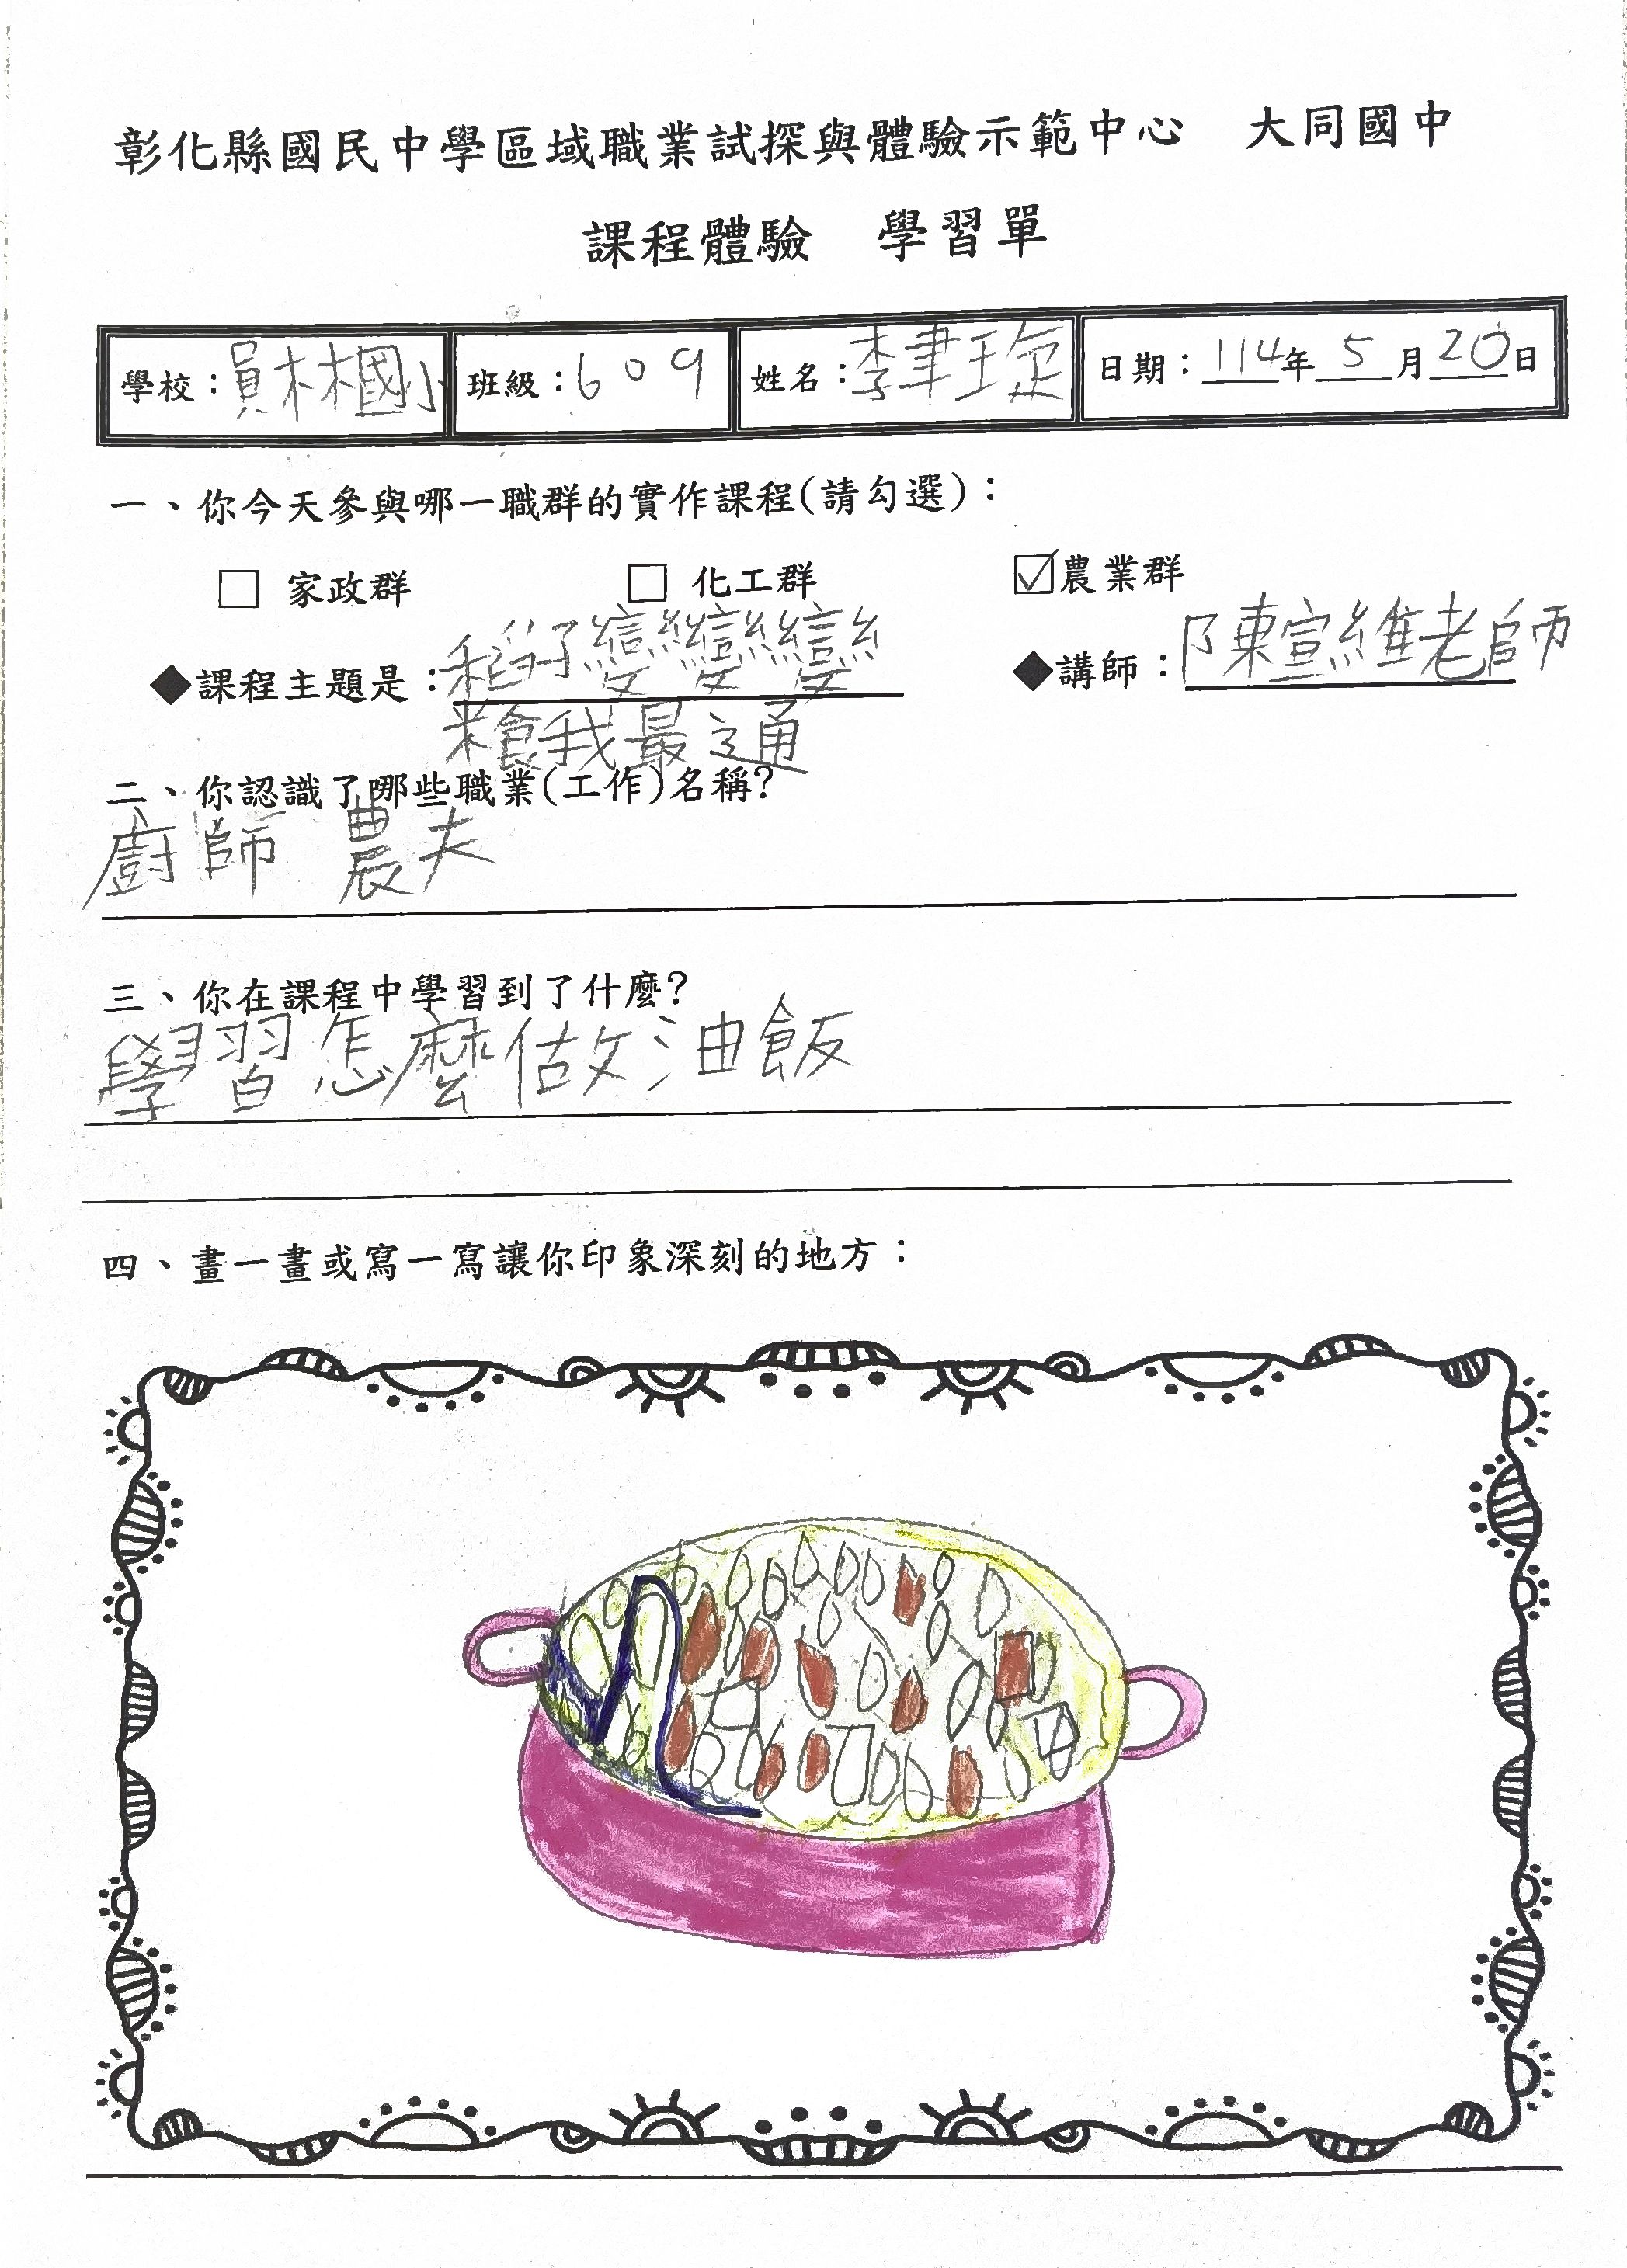 彰化縣國民中學區域職業試探與體驗示範中心 大同國中
課程體驗 學習單
學校：員林國小 班級：609 姓名：李聿 日期：114年5月20日
一、你今天參與哪一職群的實作課程(請勾選)：
□ 家政群 □ 化工群 ☑農業群
◆課程主題是：稻子變變變 ◆講師：陳宣維老師
糧我最通
二、你認識了哪些職業(工作)名稱?
廚師 農夫
三、你在課程中學習到了什麼?
學習怎麼做油飯
四、畫一畫或寫一寫讓你印象深刻的地方：